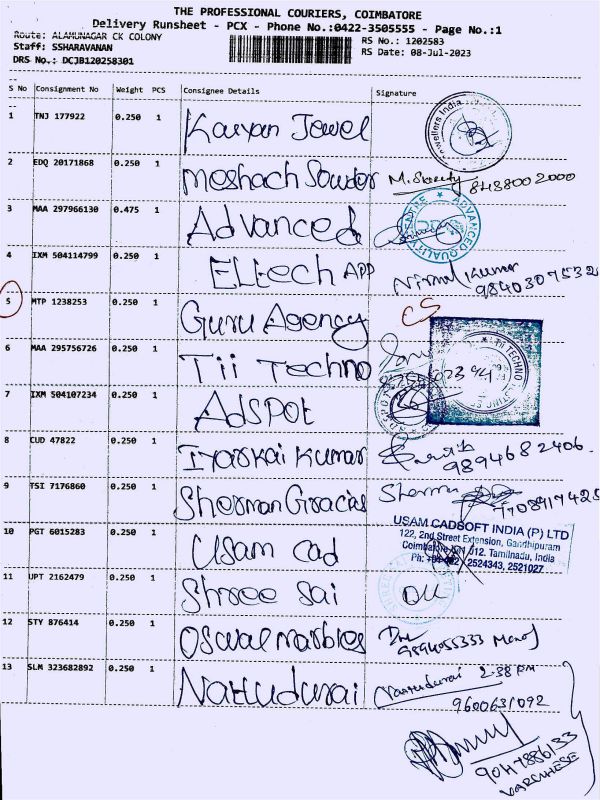 THE PROFESSIONAL COURIERS, COIMBATORE
Delivery Runsheet - PCX - Phone No.:0422-3505555 - Page No.:1
Route: ALAMUNAGAR CK COLONY
Staff: SSHARAVANAN
DRS No.: DCJB120258301
RS No.: 1202583
RS Date: 08-Jul-2023
S No Consignment No Weight PCS Consignee Details Signature
1 TNJ 177922 0.250 1 Kalyan Jewel
2 EDQ 20171868 0.250 1 Meshach Soudor 8488002000
3 MAA 297966130 0.475 1 Advanced
ADVANCED QUALITY CENTRE
4 IXM 504114799 0.250 1 ELtech APP Nirmal Kumar
9840307532
5 MTP 1238253 0.250 1 Guru Agency CS
6 MAA 295756726 0.250 1 Tii Techno
TII TECHNO
7 IXM 504107234 0.250 1 AdSPOt
8 CUD 47822 0.250 1 Iyarkai Kumar
9894682406
9 TSI 7176860 0.250 1 Sherman Gracias Sherman
10 PGT 6015283 0.250 1 Usam Cad
USAM CADSOFT INDIA (P) LTD
122, 2nd Street Extension, Gandhipuram
Coimbatore 012. Tamilnadu, India
2524343, 2521027
11 UPT 2162479 0.250 1 Shree Sai
12 STY 876414 0.250 1 Oswal Marbles
9894055333 Manoj
13 SLM 323682892 0.250 1 Nattudurai Nattudurai 2:38 PM
9600631092
9047886133
VARGHESE